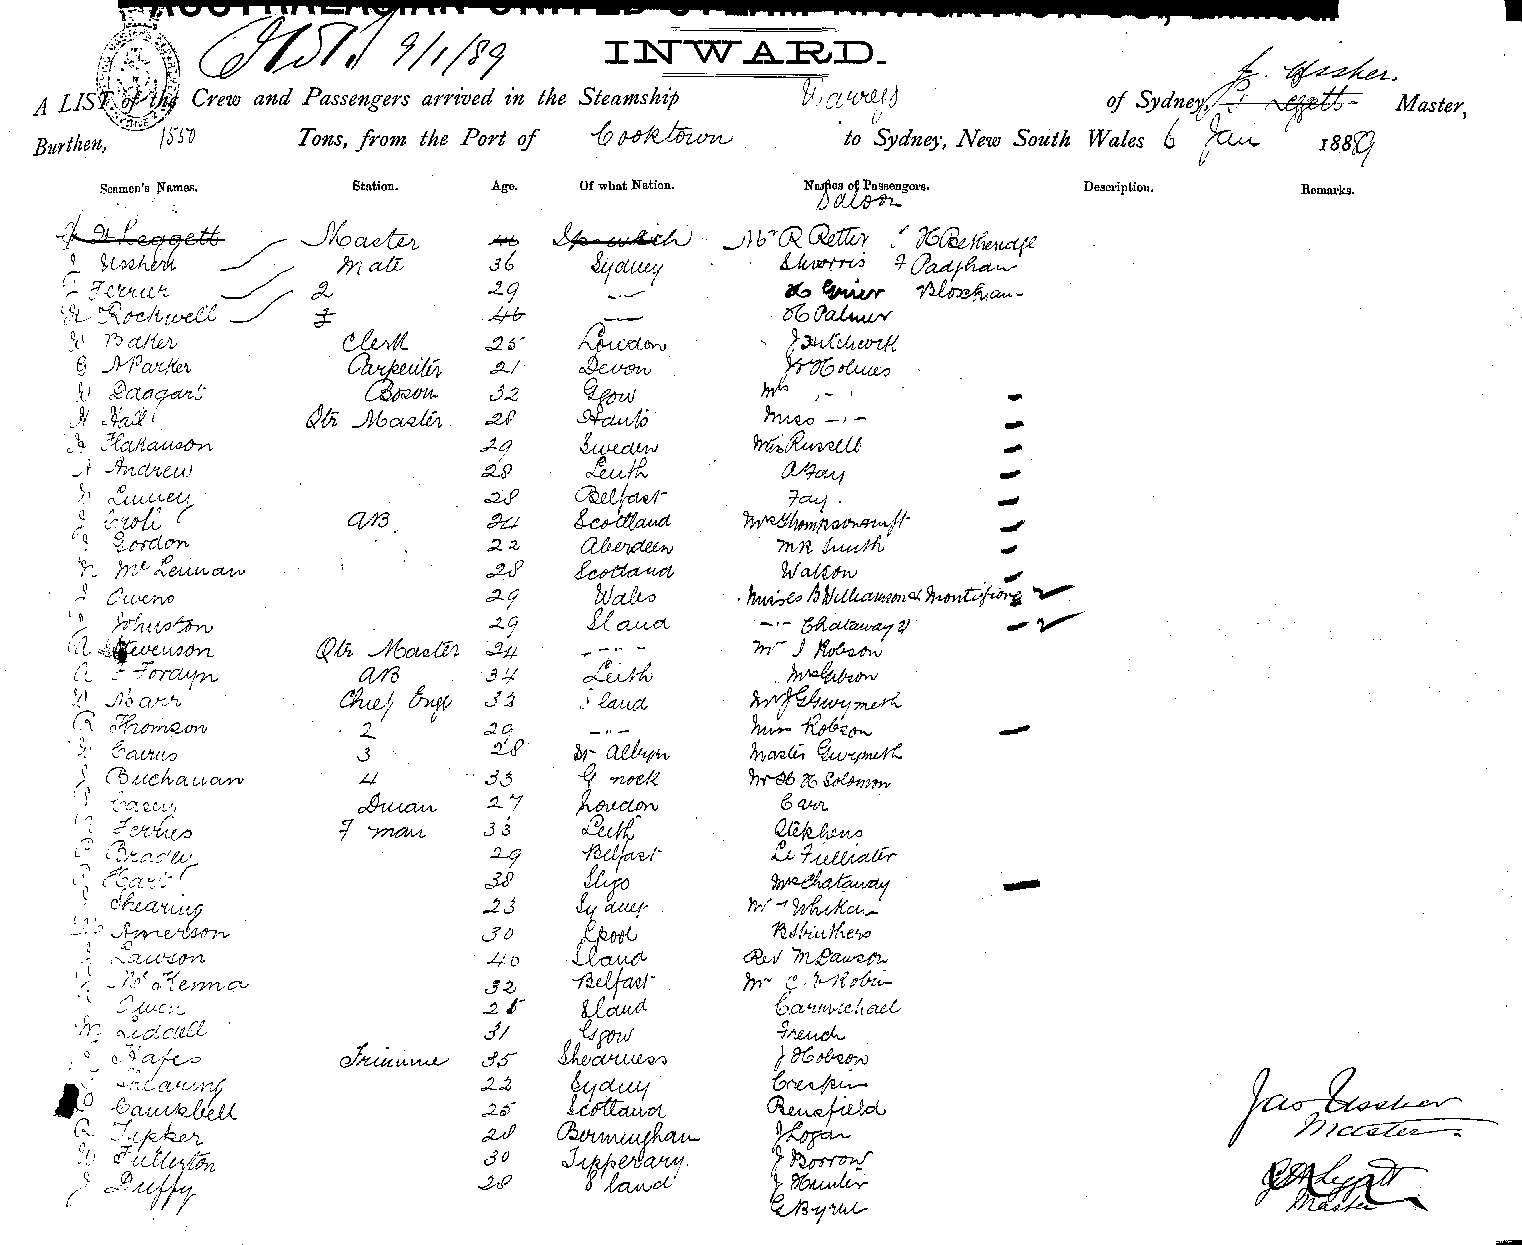 AUSTRALASIAN UNITED STEAM NAVIGATION CO., Limited
9/1/89
INWARD.
J. Ussher.
A LIST of the Crew and Passengers arrived in the Steamship Warrego of Sydney, Leggett Master,
Burthen, 1550 Tons, from the Port of Cooktown to Sydney, New South Wales 6 Jan 1889
Seamen's Names. Station. Age. Of what Nation. Names of Passengers. Description. Remarks.
Saloon
Leggett Master 46 Ipswich Mr R Retter H Betheridge
J Ussher Mate 36 Sydney S Morris F Padghan
Ferrier 2 29 -"- H Grier Bloxhan
Rockwell 3 46 H Palmer
W Baker Clerk 25 London
G Parker Carpenter 21 Devon Holmes
W Daggart Boson 32 Ggow Mrs -"-
H Hall Qtr Master 28 Hants Miss -"-
Hakanson 29 Sweden Russell
Andrew 28 Leith A Fay
Linney 28 Belfast Fay.
Croll AB 24 Scotland Mrs
J Gordon 22 Aberdeen Mr Smith
McLennan 28 Scotland Watson
Owens 29 Wales Misses B Williamson & Montifiore
Johnston 29 Sland -"- Chataway 2
A Stevenson Qtr Master 24 -"- Mr J Robson
A Fordyn AB 34 Leith Mrs Gibson
W Marr Chief Engr 33 Sland Mr J G Gwynneth
R Thomson 2 29 -"- Miss Robson
Cairns 3 28 Master Gwynneth
J Buchanan 4 33 G nock Mr H H Solomon
Casey Dman 27 London Carr
Ferries F man 33 Leith Stephens
Bradley 29 Belfast
Hart 38 Sligo Mrs Chataway
Shearing 23 Sydney Mr
Amerson 30 Lpool B Struthers
Lawson 40 Sland Rev M Dawson
McKenna 32 Belfast Mr
Owen 25 Sland Carmichael
Liddell 31 Ggow French
Hayes Trimme 35 Shearness J Hobson
Shearing 22 Sydney Crespin
Campbell 25 Scotland Bensfield
R Tupker 28 Bermingham J Logan
W Fullerton 30 Tipperary. J Borrow
J Duffy 28 S land J Hunter
G Byrne
Jas Ussher
Master
Leggett
Master